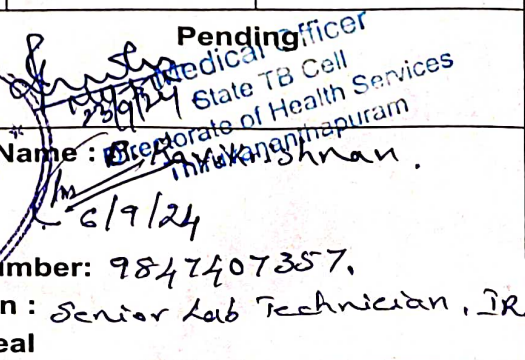 Pending
Medical Officer
State TB Cell
23/9/24
Directorate of Health Services
Thiruvananthapuram
Name :
6/9/24
umber: 9847407357.
n : Senior Lab Technician, IR
eal